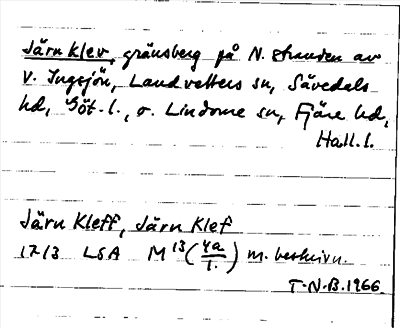 Järnklev, gränsberg på N. stranden av
V. Ingsjön, Landvetters sn, Sävedals
hd, Göt. l., o. Lindome sn, Fjäre hd,
Hall. l.
Järn Kleff, Järn Klef
1713 LSA M 13 (4a/1.) m. beskrivn.
T-N.B. 1966